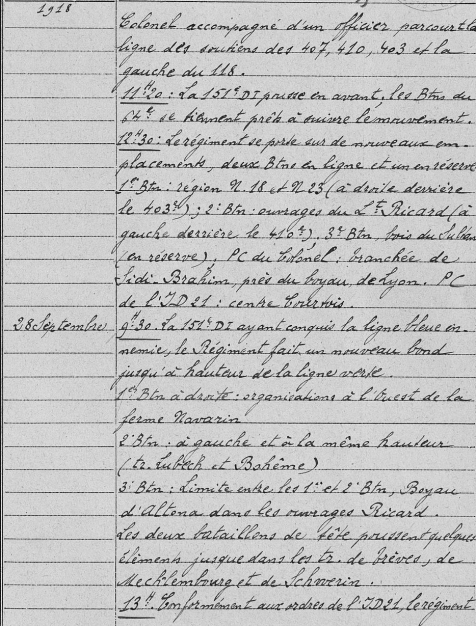 1918
Colonel accompagné d'un officier parcourt la
ligne des soutiens des 407, 410, 403 et la
gauche du 118.
11H20 : La 151e DI pousse en avant, les Btns du
64e se tiennent prêts à suivre le mouvement.
12H30 : Le régiment se porte sur de nouveaux em-
placements, deux Btns en ligne et un en réserve
1er Btn : région N.18 et N 23 (à droite derrière
le 403e) ; 2e Btn : ouvrages du Lt Ricard (à
gauche derrière le 410e), 3e Btn, bois du Sultan
(en réserve), PC du Colonel : tranchée de
Sidi-Brahim, près du boyau de Lyon. PC
de l'ID 21 : centre Courtois.
28 Septembre 9H30. La 151e DI ayant conquis la ligne bleue en-
nemie, le Régiment fait un nouveau bond
jusqu'à hauteur de la ligne verte.
1er Btn à droite : organisations à l'Ouest de la
ferme Navarin
2e Btn : à gauche et à la même hauteur
(tr. Lubeck et Bohême)
3e Btn : Limite entre les 1er et 2e Btn, Boyau
d'Altona dans les ouvrages Ricard.
Les deux bataillons de tête poussent quelques
éléments jusque dans les tr. de Trèves, de
Mecklembourg et de Schwerin.
13H. Conformément aux ordres de l'ID 21, le régiment